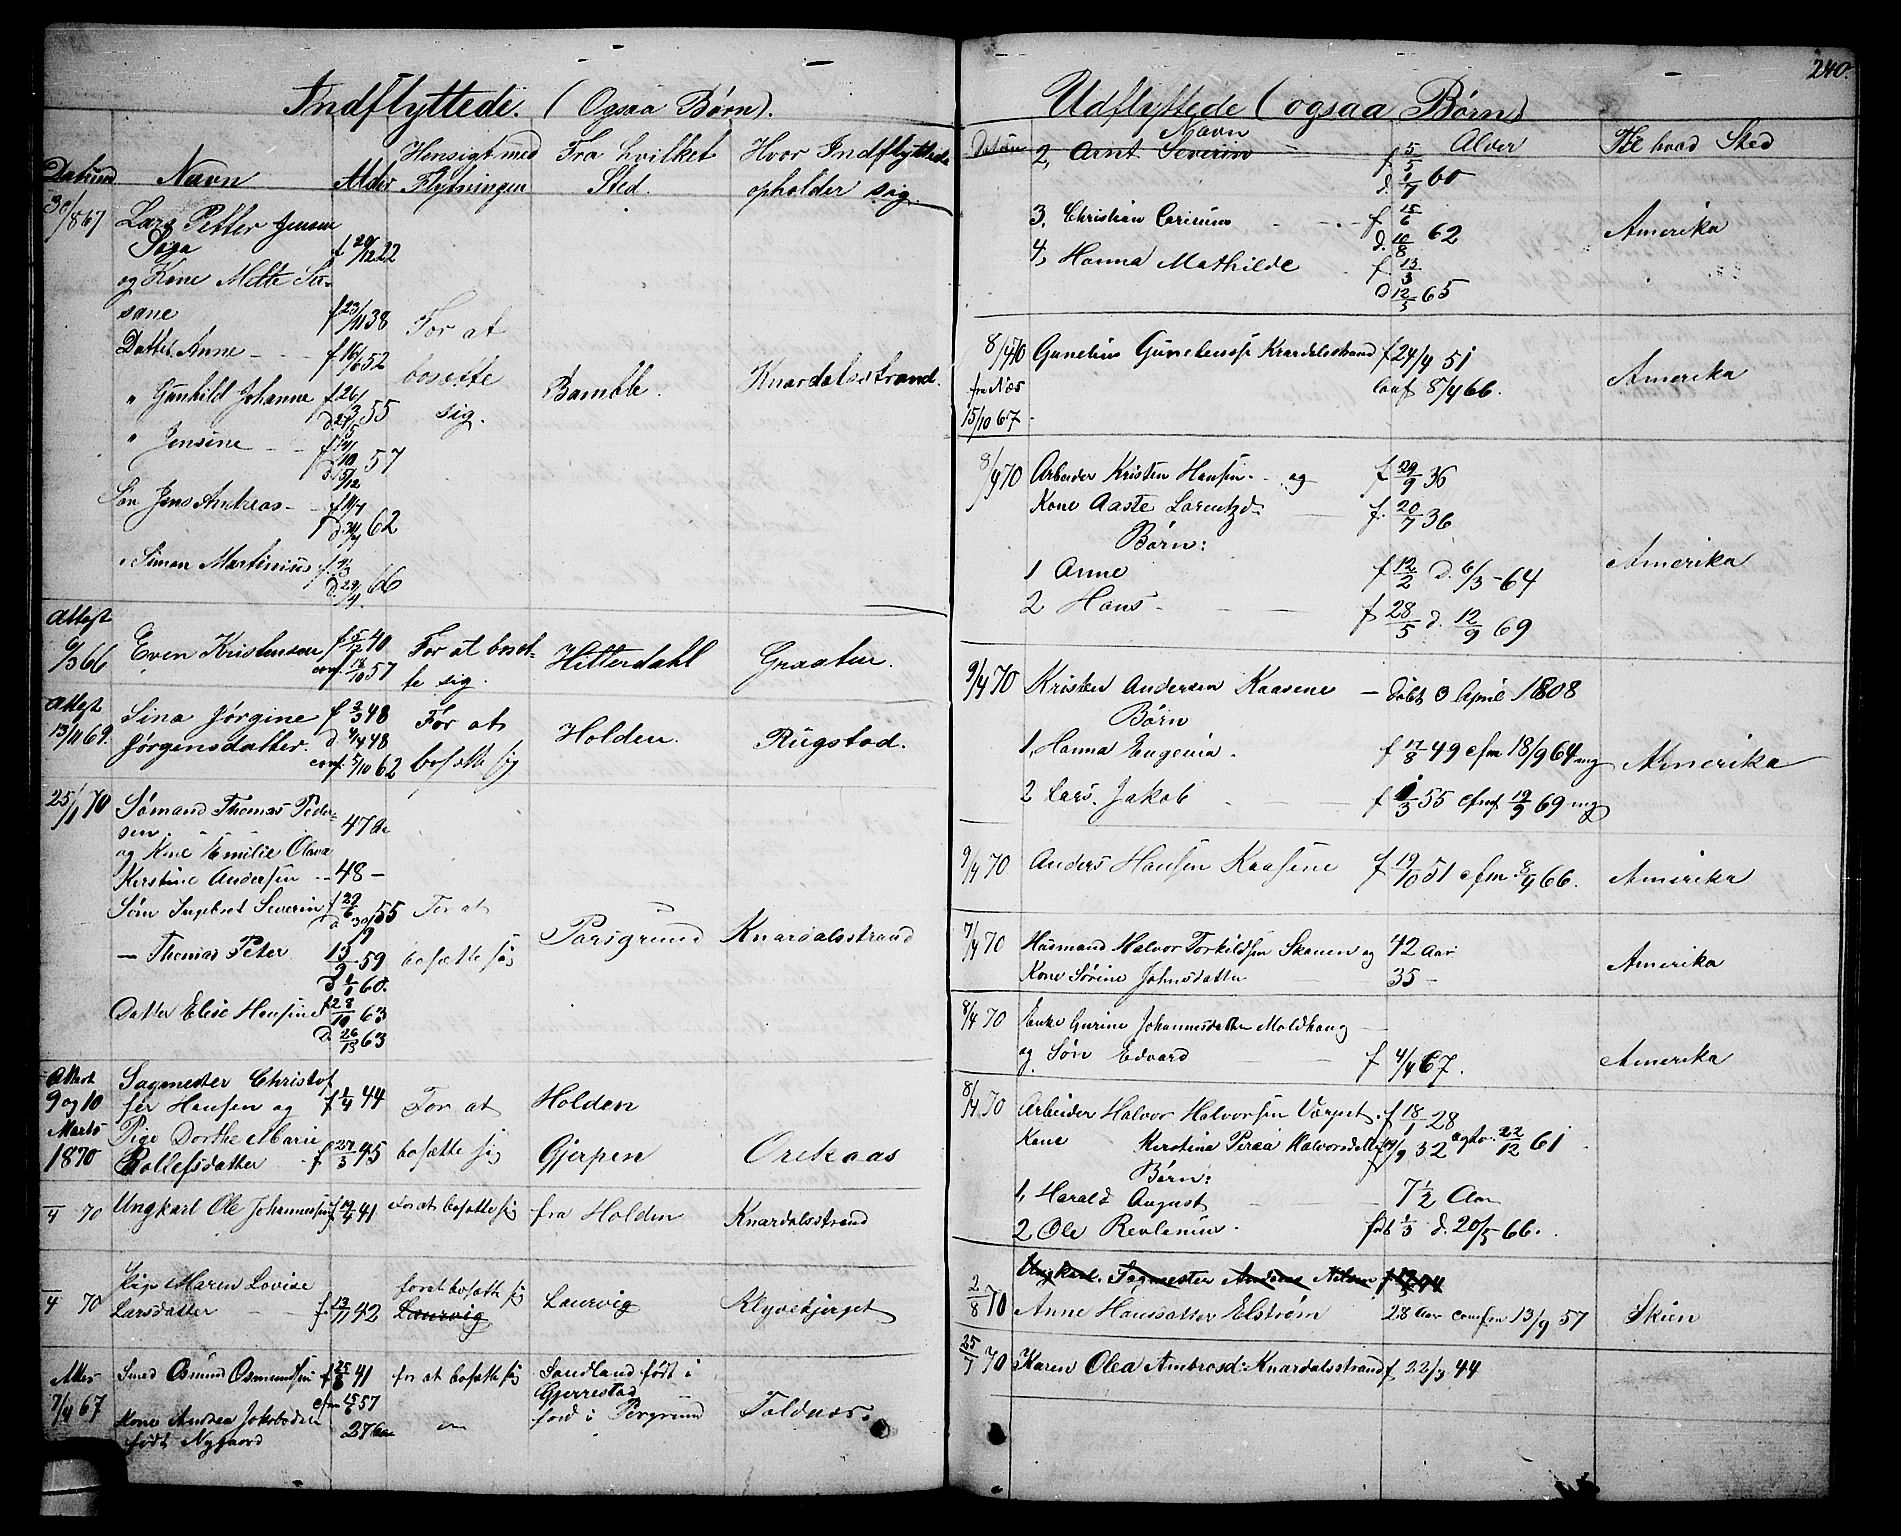 240.
Indflyttede. (Ogsaa Børn).
Datum Navn Alder Hensigt med Flytningen Fra hvilket Sted. Hvor Indflyttede opholder sig
30/8 67 Lars Petter Jensen
f 22
og Kone Mette Su-
sane f 23/11 38 For at
Datter Anne - f 16/6 52 bosætte Bamble. Knardalsstrand.
" Gunhild Johanne f 26/3 55 sig.
" Jensine - - f 57
Søn Jens Andreas - - f 62
" Simon Martinius f 66
Attest
6/3 66 Even Kristensen f 40 For at bosæt- Hitterdahl Graaten.
conf. 18/10 57 te sig.
Attest Sina Jørgine f 2/3 48 For at Holden. Rugstad.
13/11 69. Jørgensdatter. d. 48
conf. 5/10 62 bosætte sig
25/1 70 Sømand Thomas Peder-
sen. 47 Aar
og Kone Emilie Olava
Kirstine Andersen -- 48 -
Søn Ingebret Severin f 29/6 55 For at
Porsgrund Knardalsstrand
- Thomas Peter 13/9 59 bosætte sig
d 60.
Datter Elise Hansine f 28/10 63
D. 26/13 63
Attest Sagmester Christof
9 og 10 fer Hansen og f 1/4 44 For at Holden
Marts Pige Dorthe Marie
1870 Rollefsdatter - f 27/3 45 bosætte sig Gjerpen Orekaas
/4 70 Ungkarl Ole Johannessen f 41 For at bosætte sig fra Holden Knardalsstrand
/4 70 Pige Maren Lovise for at bosætte sig
Larsdatter - f. 13/11 42 Laurvig Laurvig Klyvebjerget
Attes Smed Osmund Osmundsen f 25/8 41 for at bosætte sig Sandland født i
Gjerrestad
7/4 67 Kone Andrea Jakobsdtr 27 Aar fød i Porsgrund Toldnæs.
født Nygaard
Udflyttede (ogsaa Børn)
Datum Navn Alder Til hvad Sted
2, Arnt Severin - f 5/5
d. 1/7 60
3. Christian Carinius - - f 15/6
d. 10/8 62 Amerika
4, Hanna Mathilde - f 13/3
D 12/5 65
8/4 70 Gunelius Gunelussen Knardalsstrand f 24/4 51 Amerika
fra Næs conf 8/4 66.
15/10 67
8/4 70 Arbeider Kristen Hansen - og f 29/9 36
Kone Aaste Larentzd. f. 20/7 36
Børn:
1 Anne f 12/2 d. 6/3 - 64 Amerika
2 Hans - f 28/5 d. 12/9 69
9/4 70 Kristen Andersen Kaasene - døbt 3 April 1808
Børn
1, Hanna Eugenia. f 17/8 49 cfm 18/9 64 mg Amerika
2 Lars. Jakob - f 1/3 55 cfm 19/9 69 mg
9/4 70 Anders Hansen Kaasene f 19/10 51 cfm. 8/4 66. Amerika
7/4 70 Husmand Halvor Torkildsen Skauen og 42 Aar Amerika
Kone Sørine Johnsdatter 35 -
8/4 70 Enke Gurine Johannesdatter Moldhaug -
og Søn Edvard - f 4/4 67. Amerika
8/4 70 Arbeider Halvor Halvorsen Værpet. f 18/1 28
Kone Kirstina Peraa Halvorsdatter 32 22/12 61
Børn:
1, Harald August - 7½ Aar
2 Ole Revlenius - født 1/3 d. 20/5 66.
Ungkarl. Sagmester Nilsen f 44
2/8 70 Anne Hansdatter Elstrøm 28 Aar confm 13/9 57 Skien
25/7 70 Karen Olea Ambrosd: Knardalsstrand f 22/3 44